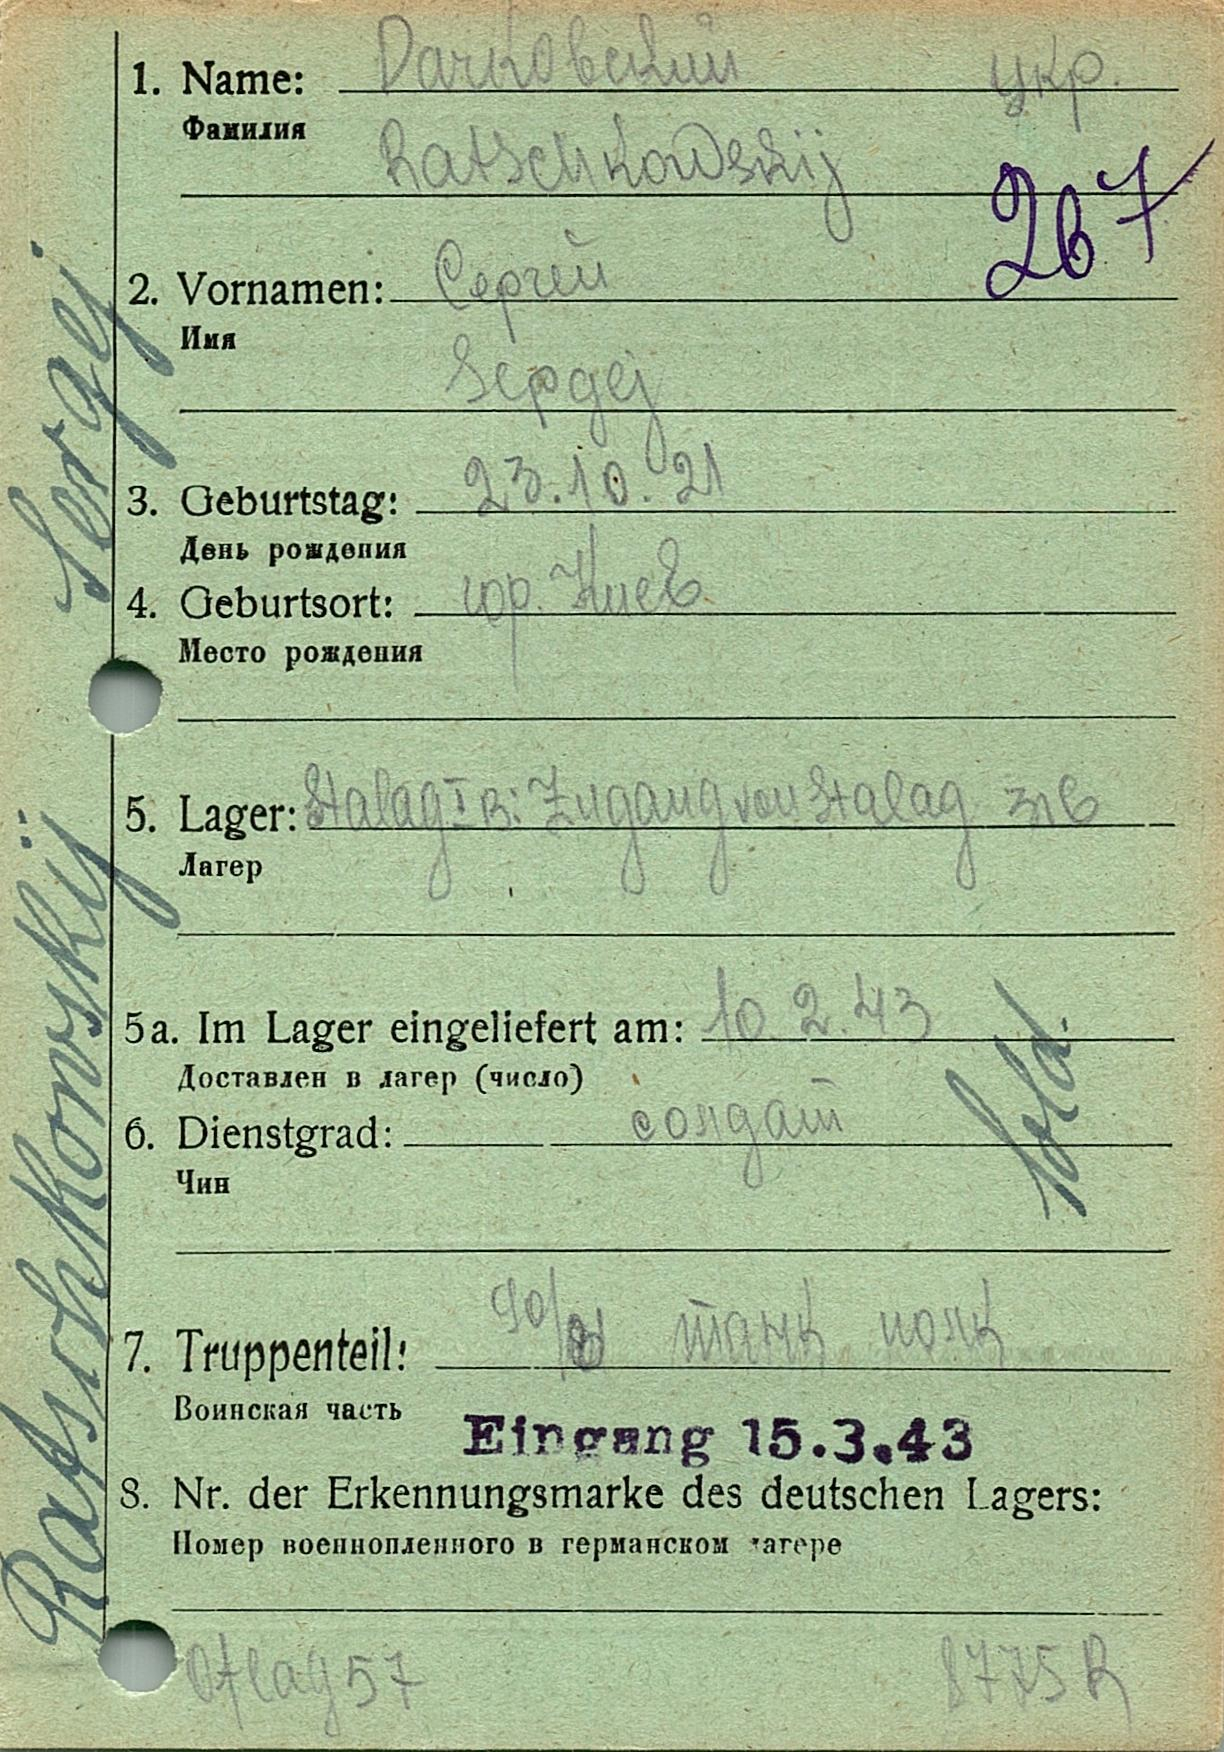 1. Name: Рачковский укр.
Фамилия
Ratschkowskij
267
2. Vornamen: Сергей
Имя
Sepgej
3. Geburtstag: 23.10.21
День рождения
4. Geburtsort: гор. Киев
Место рождения
5. Lager: Stalag I B: Zugang von Stalag
Лагер
5a. Im Lager eingeliefert am: 10.2.43
Доставлен в лагер (число)
6. Dienstgrad: солдат
Sold.
Чин
7. Truppenteil: танк полк
Воинская часть
Eingang 15.3.43
8. Nr. der Erkennungsmarke des deutschen Lagers:
Номер военнопленного в германском лагере
Oflag 57 8775 R
Ratschkowskij Sergej